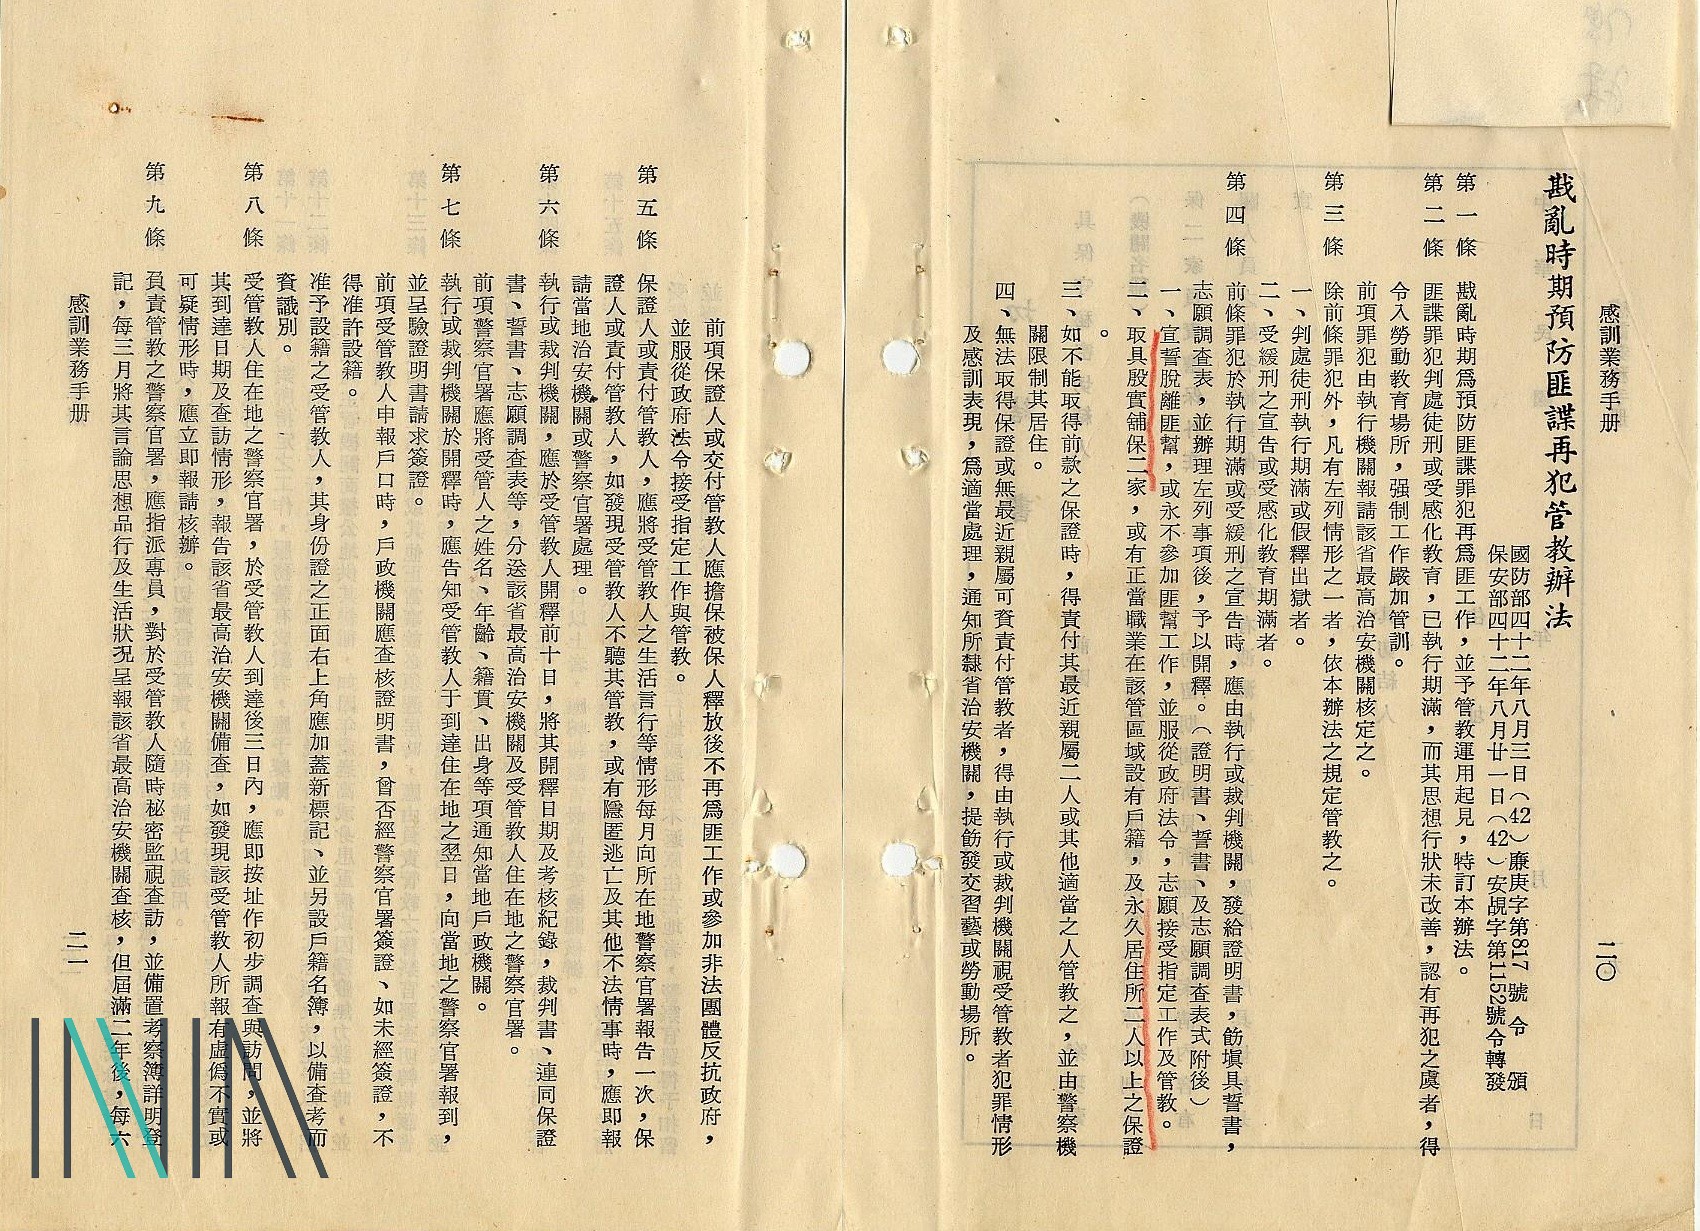 感訓業務手册
二〇
戡亂時期預防匪諜再犯管教辦法
國防部四十二年八月三日（42）廉庚字第817號令 頒
保安部四十二年八月廿一日（42）安覘字第1152號令轉發
第一條 戡亂時期爲預防匪諜罪犯再爲匪工作，並予管教運用起見，特訂本辦法。
第二條 匪諜罪犯判處徒刑或受感化教育，已執行期滿，而其思想行狀未改善，認有再犯之虞者，得
令入勞動教育場所，强制工作嚴加管訓。
前項罪犯由執行機關報請該省最高治安機關核定之。
第三條 除前條罪犯外，凡有左列情形之一者，依本辦法之規定管教之。
一、判處徒刑執行期滿或假釋出獄者。
二、受緩刑之宣告或受感化教育期滿者。
第四條 前條罪犯於執行期滿或受緩刑之宣告時，應由執行或裁判機關，發給證明書，飭塡具誓書，
志願調查表，並辦理左列事項後，予以開釋。（證明書、誓書、及志願調查表式附後）
一、宣誓脫離匪幫，或永不參加匪幫工作，並服從政府法令，志願接受指定工作及管教。
二、取具殷實舖保二家，或有正當職業在該管區域設有戶籍，及永久居住所二人以上之保證
。
三、如不能取得前款之保證時，得責付其最近親屬二人或其他適當之人管教之，並由警察機
關限制其居住。
四、無法取得保證或無最近親屬可資責付管教者，得由執行或裁判機關視受管教者犯罪情形
及感訓表現，爲適當處理，通知所隸省治安機關，提飭發交習藝或勞動場所。
前項保證人或交付管教人應擔保被保人釋放後不再爲匪工作或參加非法團體反抗政府，
並服從政府法令接受指定工作與管教。
第五條 保證人或責付管教人，應將受管教人之生活言行等情形每月向所在地警察官署報告一次，保
證人或責付管教人，如發現受管教人不聽其管教，或有隱匿逃亡及其他不法情事時，應即報
請當地治安機關或警察官署處理。
第六條 執行或裁判機關，應於受管教人開釋前十日，將其開釋日期及考核紀錄，裁判書、連同保證
書、誓書、志願調查表等，分送該省最高治安機關及受管教人住在地之警察官署。
前項警察官署應將受管人之姓名、年齡、籍貫、出身等項通知當地戶政機關。
第七條 執行或裁判機關於開釋時，應告知受管教人于到達住在地之翌日，向當地之警察官署報到，
並呈驗證明書請求簽證。
前項受管教人申報戶口時，戶政機關應查核證明書，曾否經警察官署簽證、如未經簽證，不
得准許設籍。
准予設籍之受管教人，其身份證之正面右上角應加蓋新標記、並另設戶籍名簿，以備查考而
資識別。
第八條 受管教人住在地之警察官署，於受管教人到達後三日內，應即按址作初步調查與訪問，並將
其到達日期及查訪情形，報告該省最高治安機關備查，如發現該受管教人所報有虛僞不實或
可疑情形時，應立即報請核辦。
第九條 負責管教之警察官署，應指派專員，對於受管教人隨時秘密監視查訪，並備置考察簿詳明登
記，每三月將其言論思想品行及生活狀況呈報該省最高治安機關查核，但屆滿二年後，每六
感訓業務手册
二一